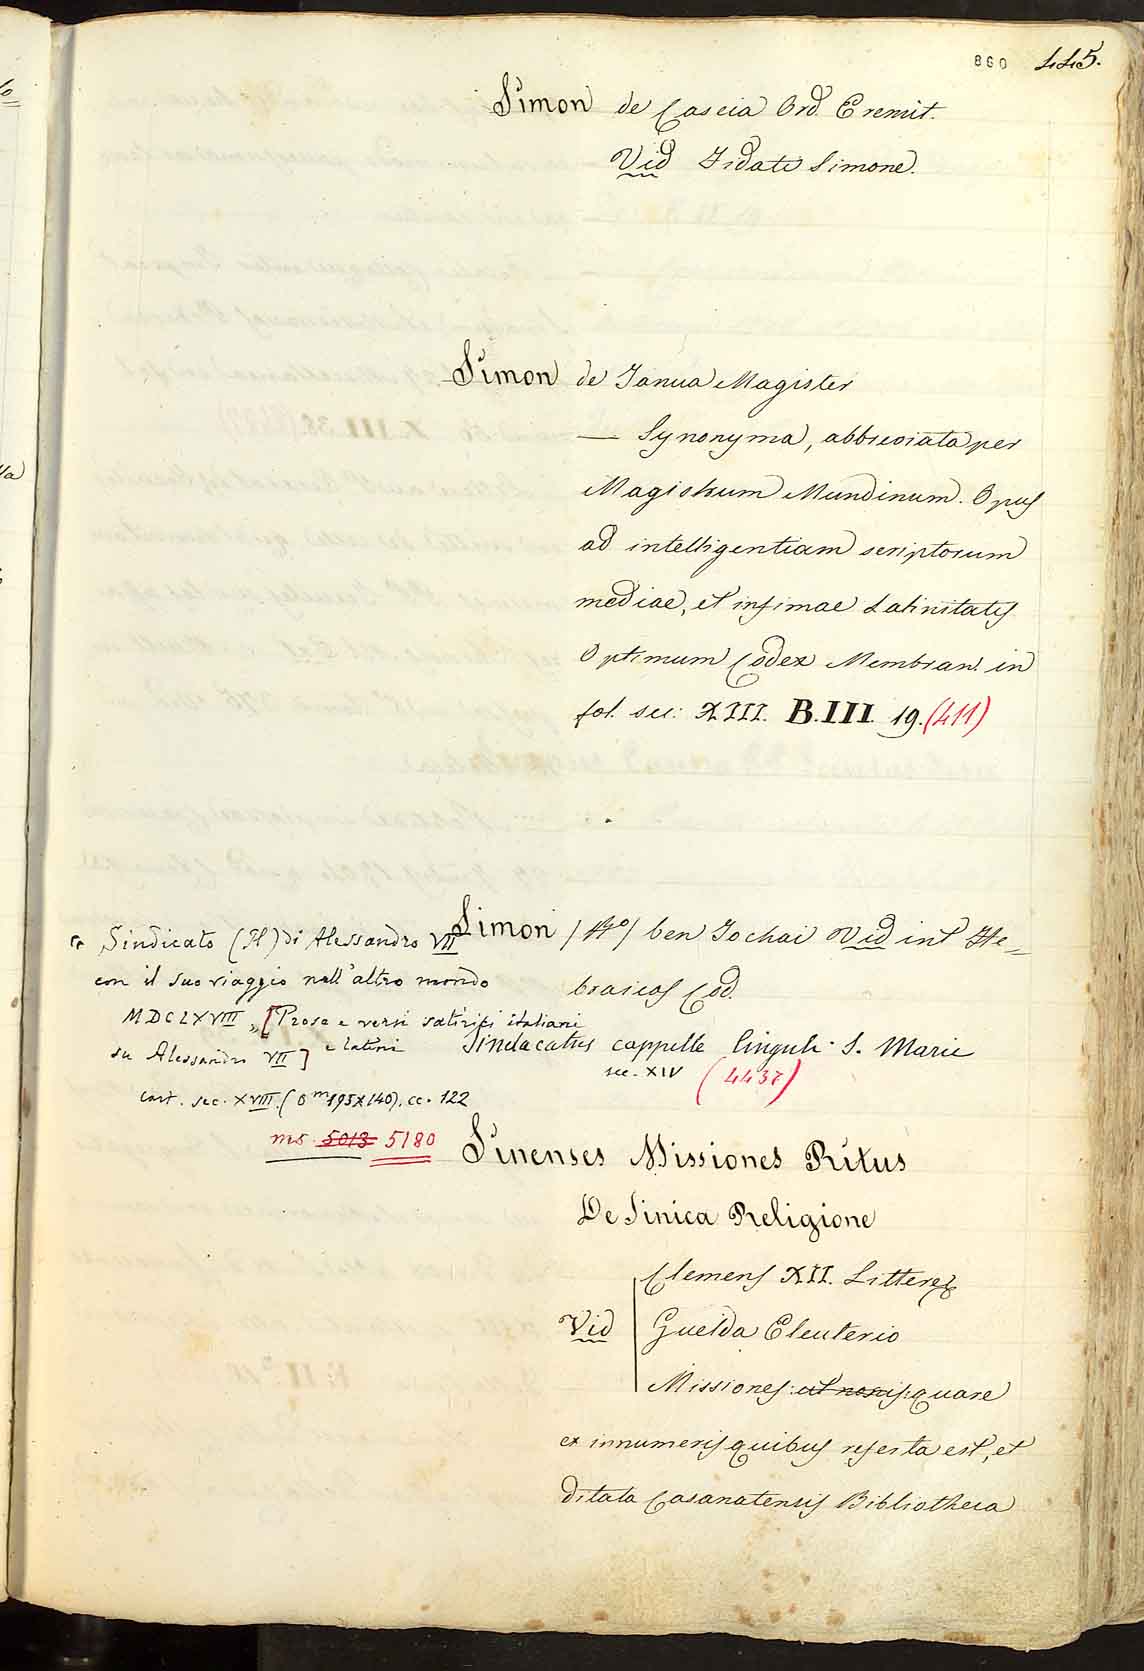 860 445.
Simon de Cascia Ord. Eremit.
Vid Fidati Simone.
Simon de Janua Magister
— Synonyma, abbreviata per
Magistrum Mundinum. Opus
ad intelligentiam scriptorum
mediae, et infimae Latinitatis
Optimum Codex Membran. in
fol. sec: XIII. B.III. 19. (411)
Simon / / ben Jochai Vid int He=
braicos Cod.
Sindicato (Il) di Alessandro VII
con il suo viaggio nell'altro mondo
MDCLXVIII „ [Prose e versi satirici italiani
e latini
su Alessandro VII]
cart. sec. XVIII. (0m 195x140). cc. 122
ms. 5013 5180
Sindacatus cappelle Cinguli S. Marie
sec. XIV (4437)
Sinenses Missiones Ritus
De Sinica Religione
Clemens XII. Litterae
Vid Guelda Eleuterio
Missiones: ut novis: quare
ex innumeris quibus referta est, et
ditata Casanatensis Bibliotheca